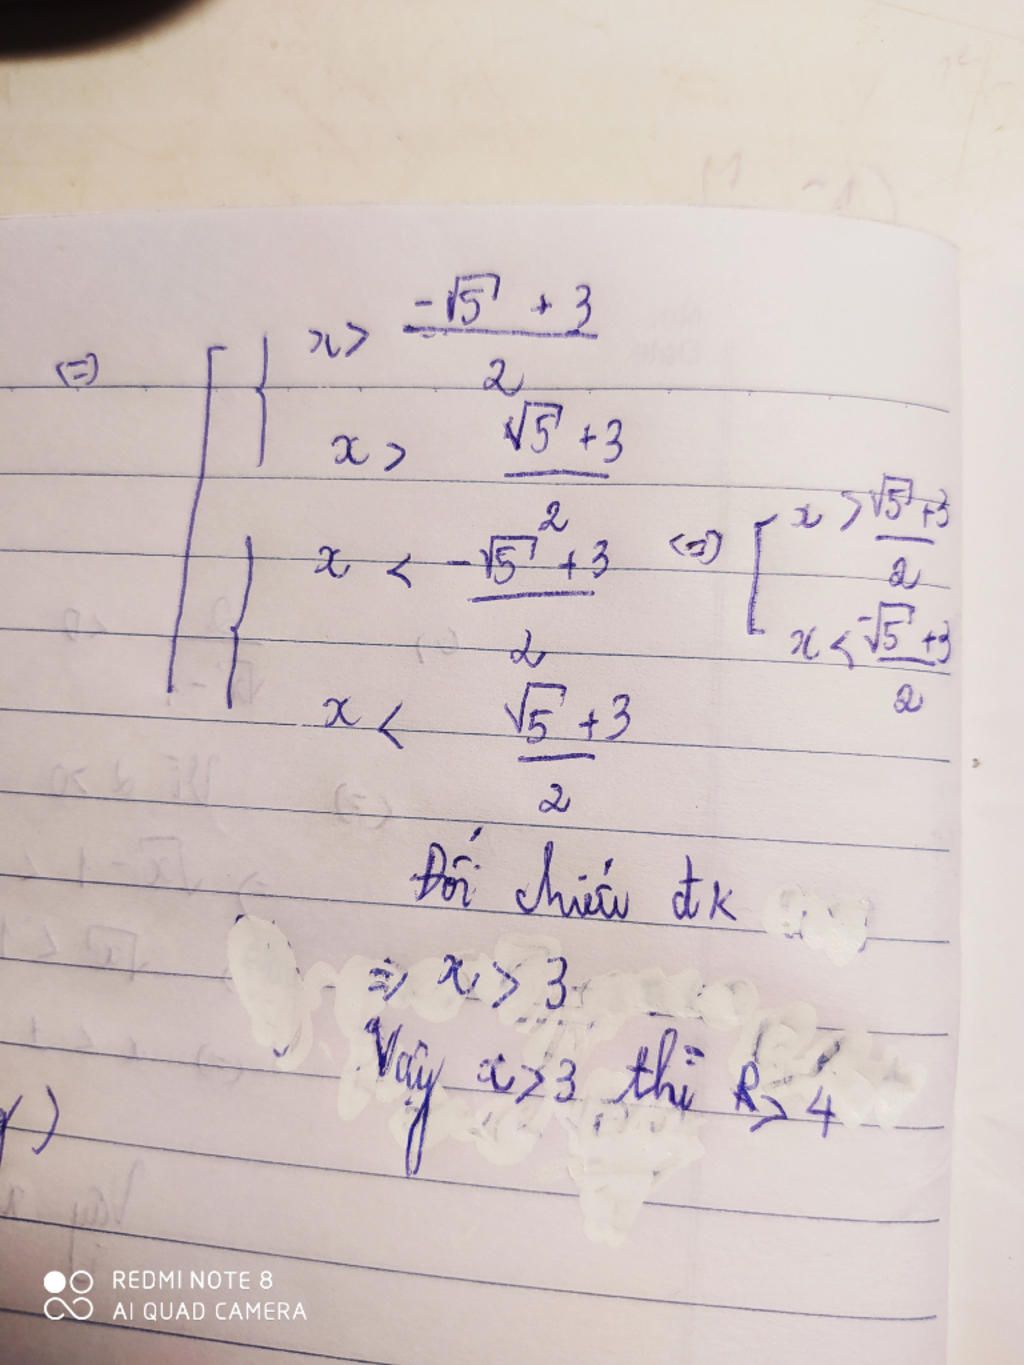 (=) [ { x > (-√5 + 3)/2
x > (√5 + 3)/2
{ x < (-√5 + 3)/2 (=) [ x > (√5 + 3)/2
x < (√5 + 3)/2 x < (-√5 + 3)/2
Đối chiếu đk
=> x > 3
Vậy x > 3 thì R > 4
REDMI NOTE 8
AI QUAD CAMERA